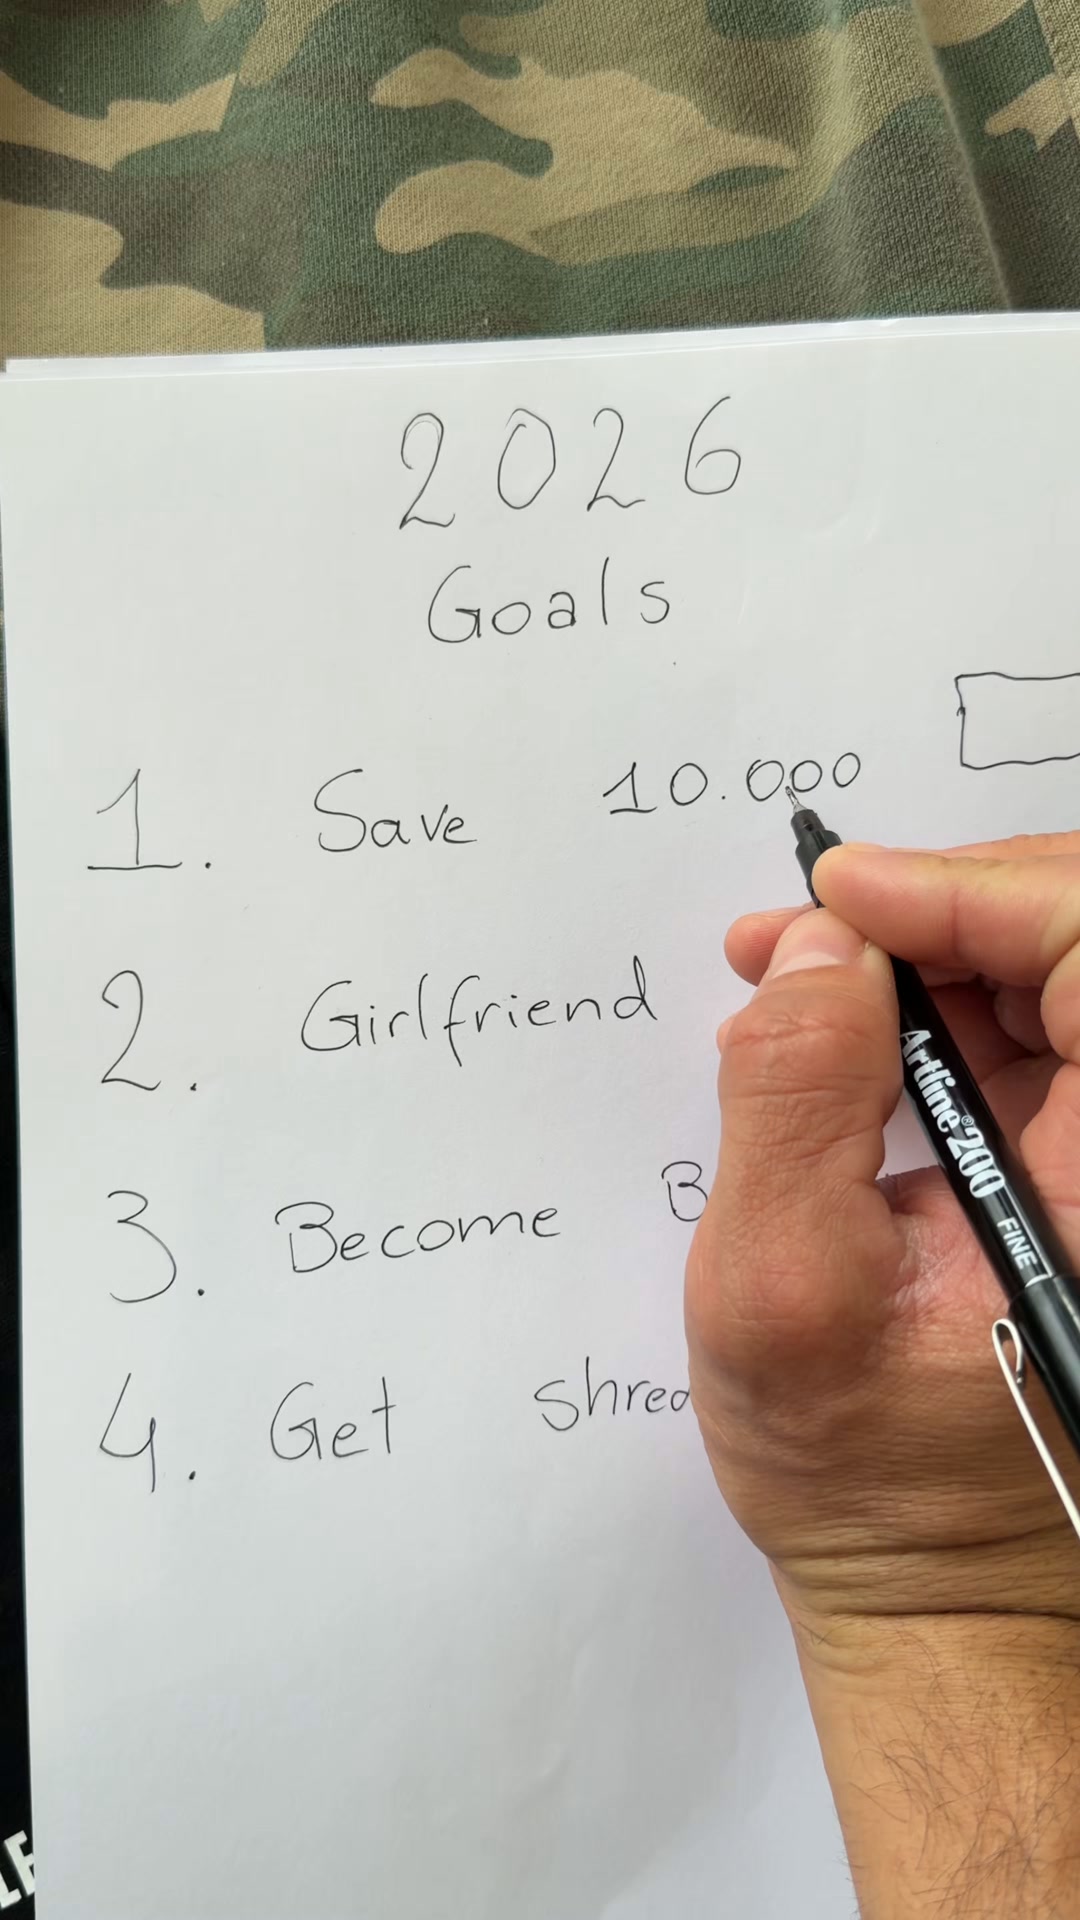 2026
Goals
1. Save 10.000
2. Girlfriend
3. Become
4. Get
Artline® 200 FINE